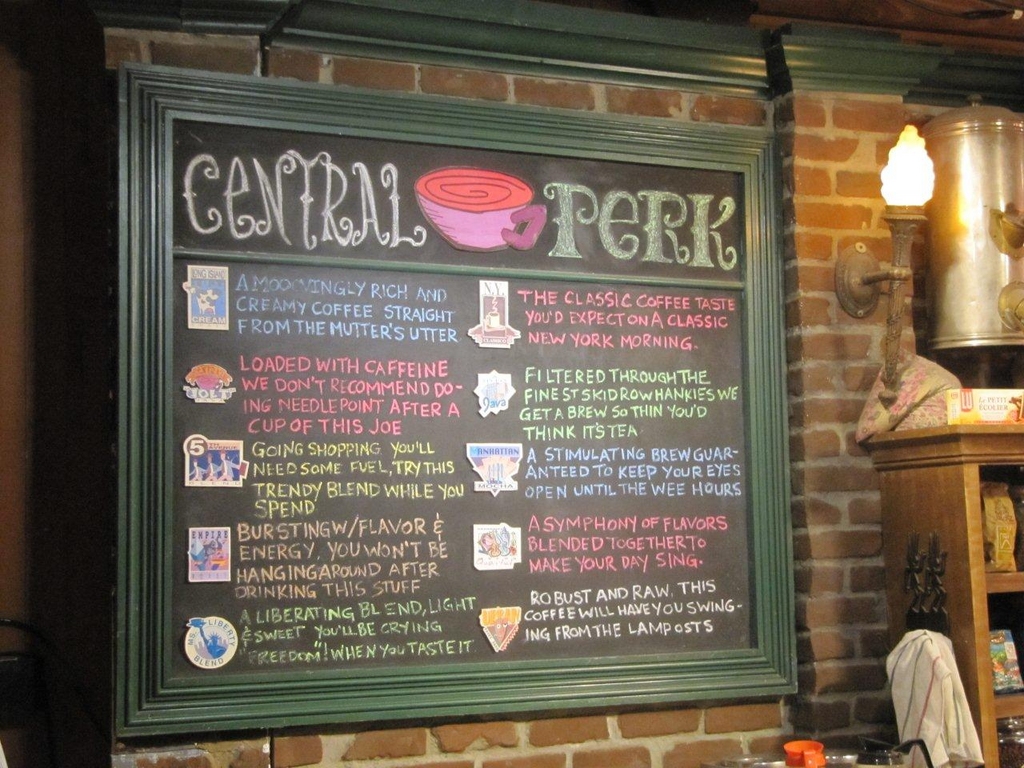 CENTRAL PERK
LONG ISLAND
CREAM
A MOOOVINGLY RICH AND
CREAMY COFFEE STRAIGHT
FROM THE MUTTER'S UTTER
JOLT
LOADED WITH CAFFEINE
WE DON'T RECOMMEND DO-
ING NEEDLEPOINT AFTER A
CUP OF THIS JOE
5
GOING SHOPPING YOU'LL
NEED SOME FUEL, TRY THIS
TRENDY BLEND WHILE YOU
SPEND
EMPIRE
BURSTING W/FLAVOR &
ENERGY. YOU WON'T BE
HANGING AROUND AFTER
DRINKING THIS STUFF
MS. LIBERTY
BLEND
A LIBERATING BLEND, LIGHT
& SWEET YOU'LL BE CRYING
"FREEDOM"! WHEN YOU TASTE IT
N.Y.
CLASSICO
THE CLASSIC COFFEE TASTE
YOU'D EXPECT ON A CLASSIC
NEW YORK MORNING.
Java
FILTERED THROUGH THE
FINEST SKID ROW HANKIES WE
GET A BREW SO THIN YOU'D
THINK IT'S TEA
MANHATTAN
MOCHA
A STIMULATING BREW GUAR-
ANTEED TO KEEP YOUR EYES
OPEN UNTIL THE WEE HOURS
A SYMPHONY OF FLAVORS
BLENDED TOGETHER TO
MAKE YOUR DAY SING.
URBAN
ROBUST AND RAW, THIS
COFFEE WILL HAVE YOU SWING-
ING FROM THE LAMPOSTS
PETIT
ÉCOLIER